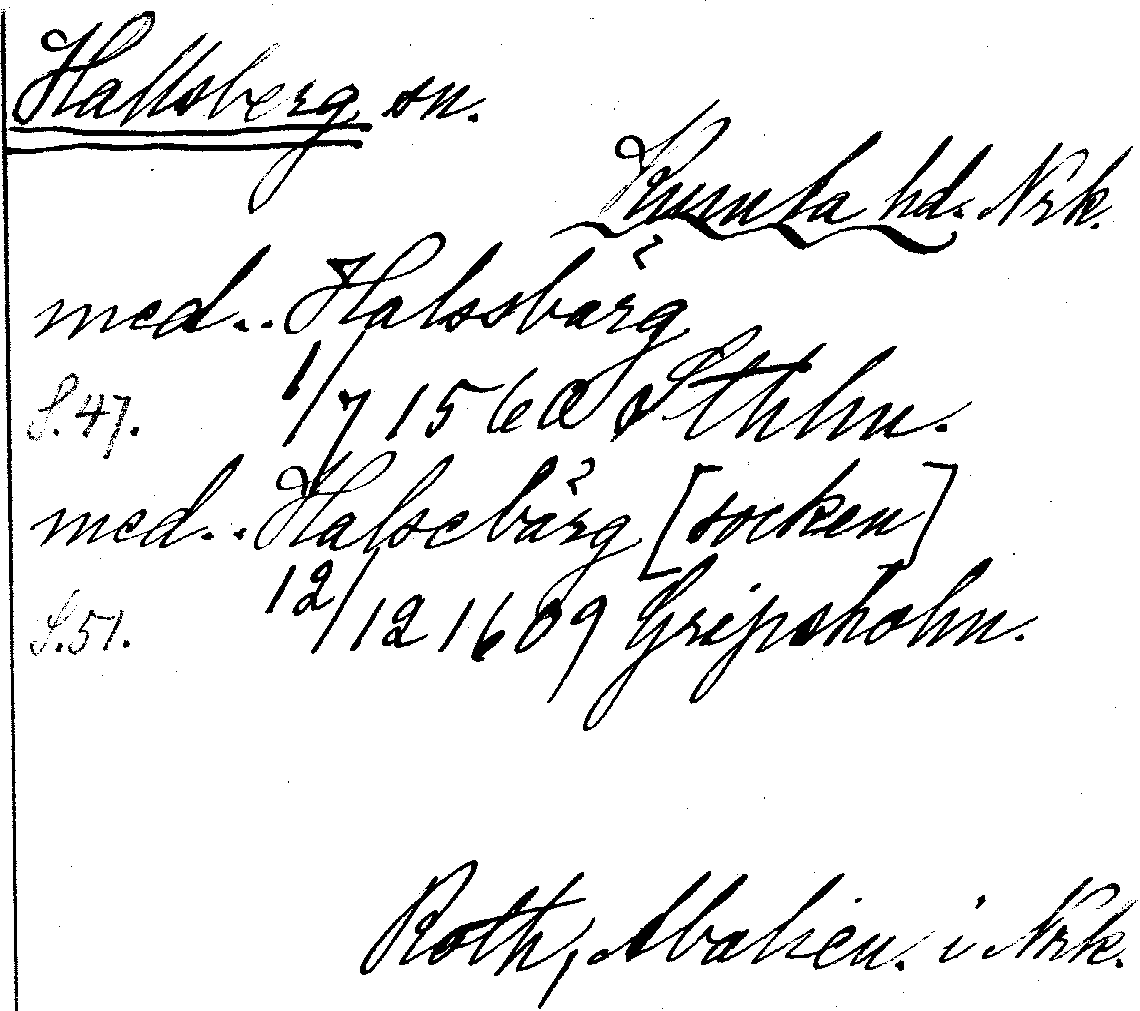 Hallsberg sn.
Kumla hd. Nrk.
med.. Halssbärg
S. 47. 1/7 1560 Sthlm.
med.. Halsebärg [socken]
S. 51. 12/12 1609 Gripsholm.
Roth, i Nrk.